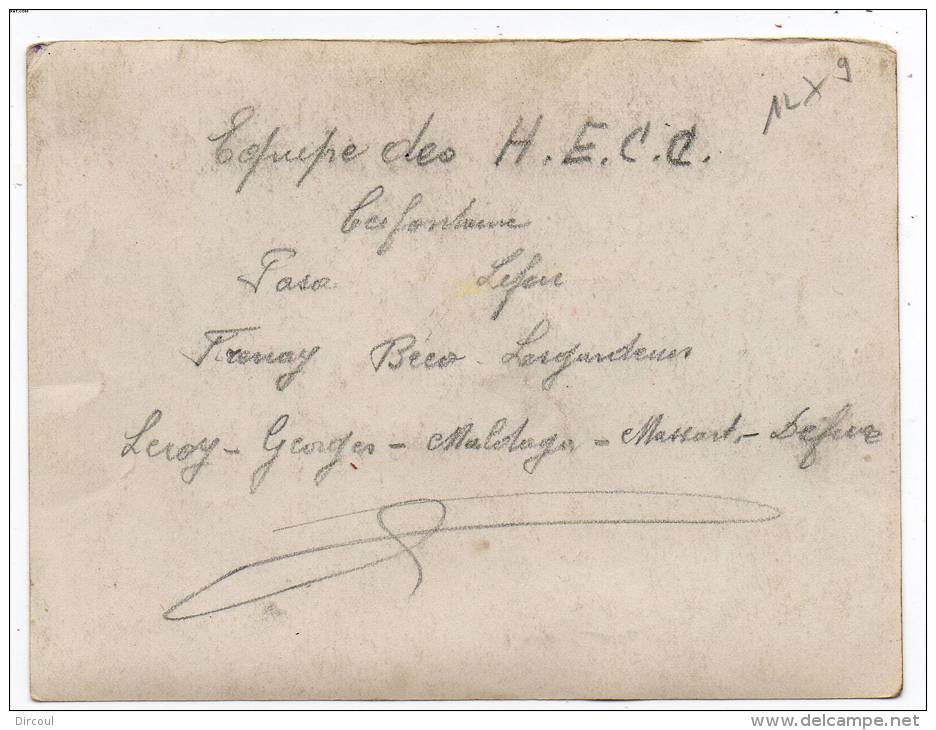 12 x 9
Equipe des H.E.C.C.
Cerfontaine
Pasa Lefin
Frenay Béco - Lasgardeurs
Leroy - Georges - Maldague - Massart - Defize
Dircoul
www.delcampe.net